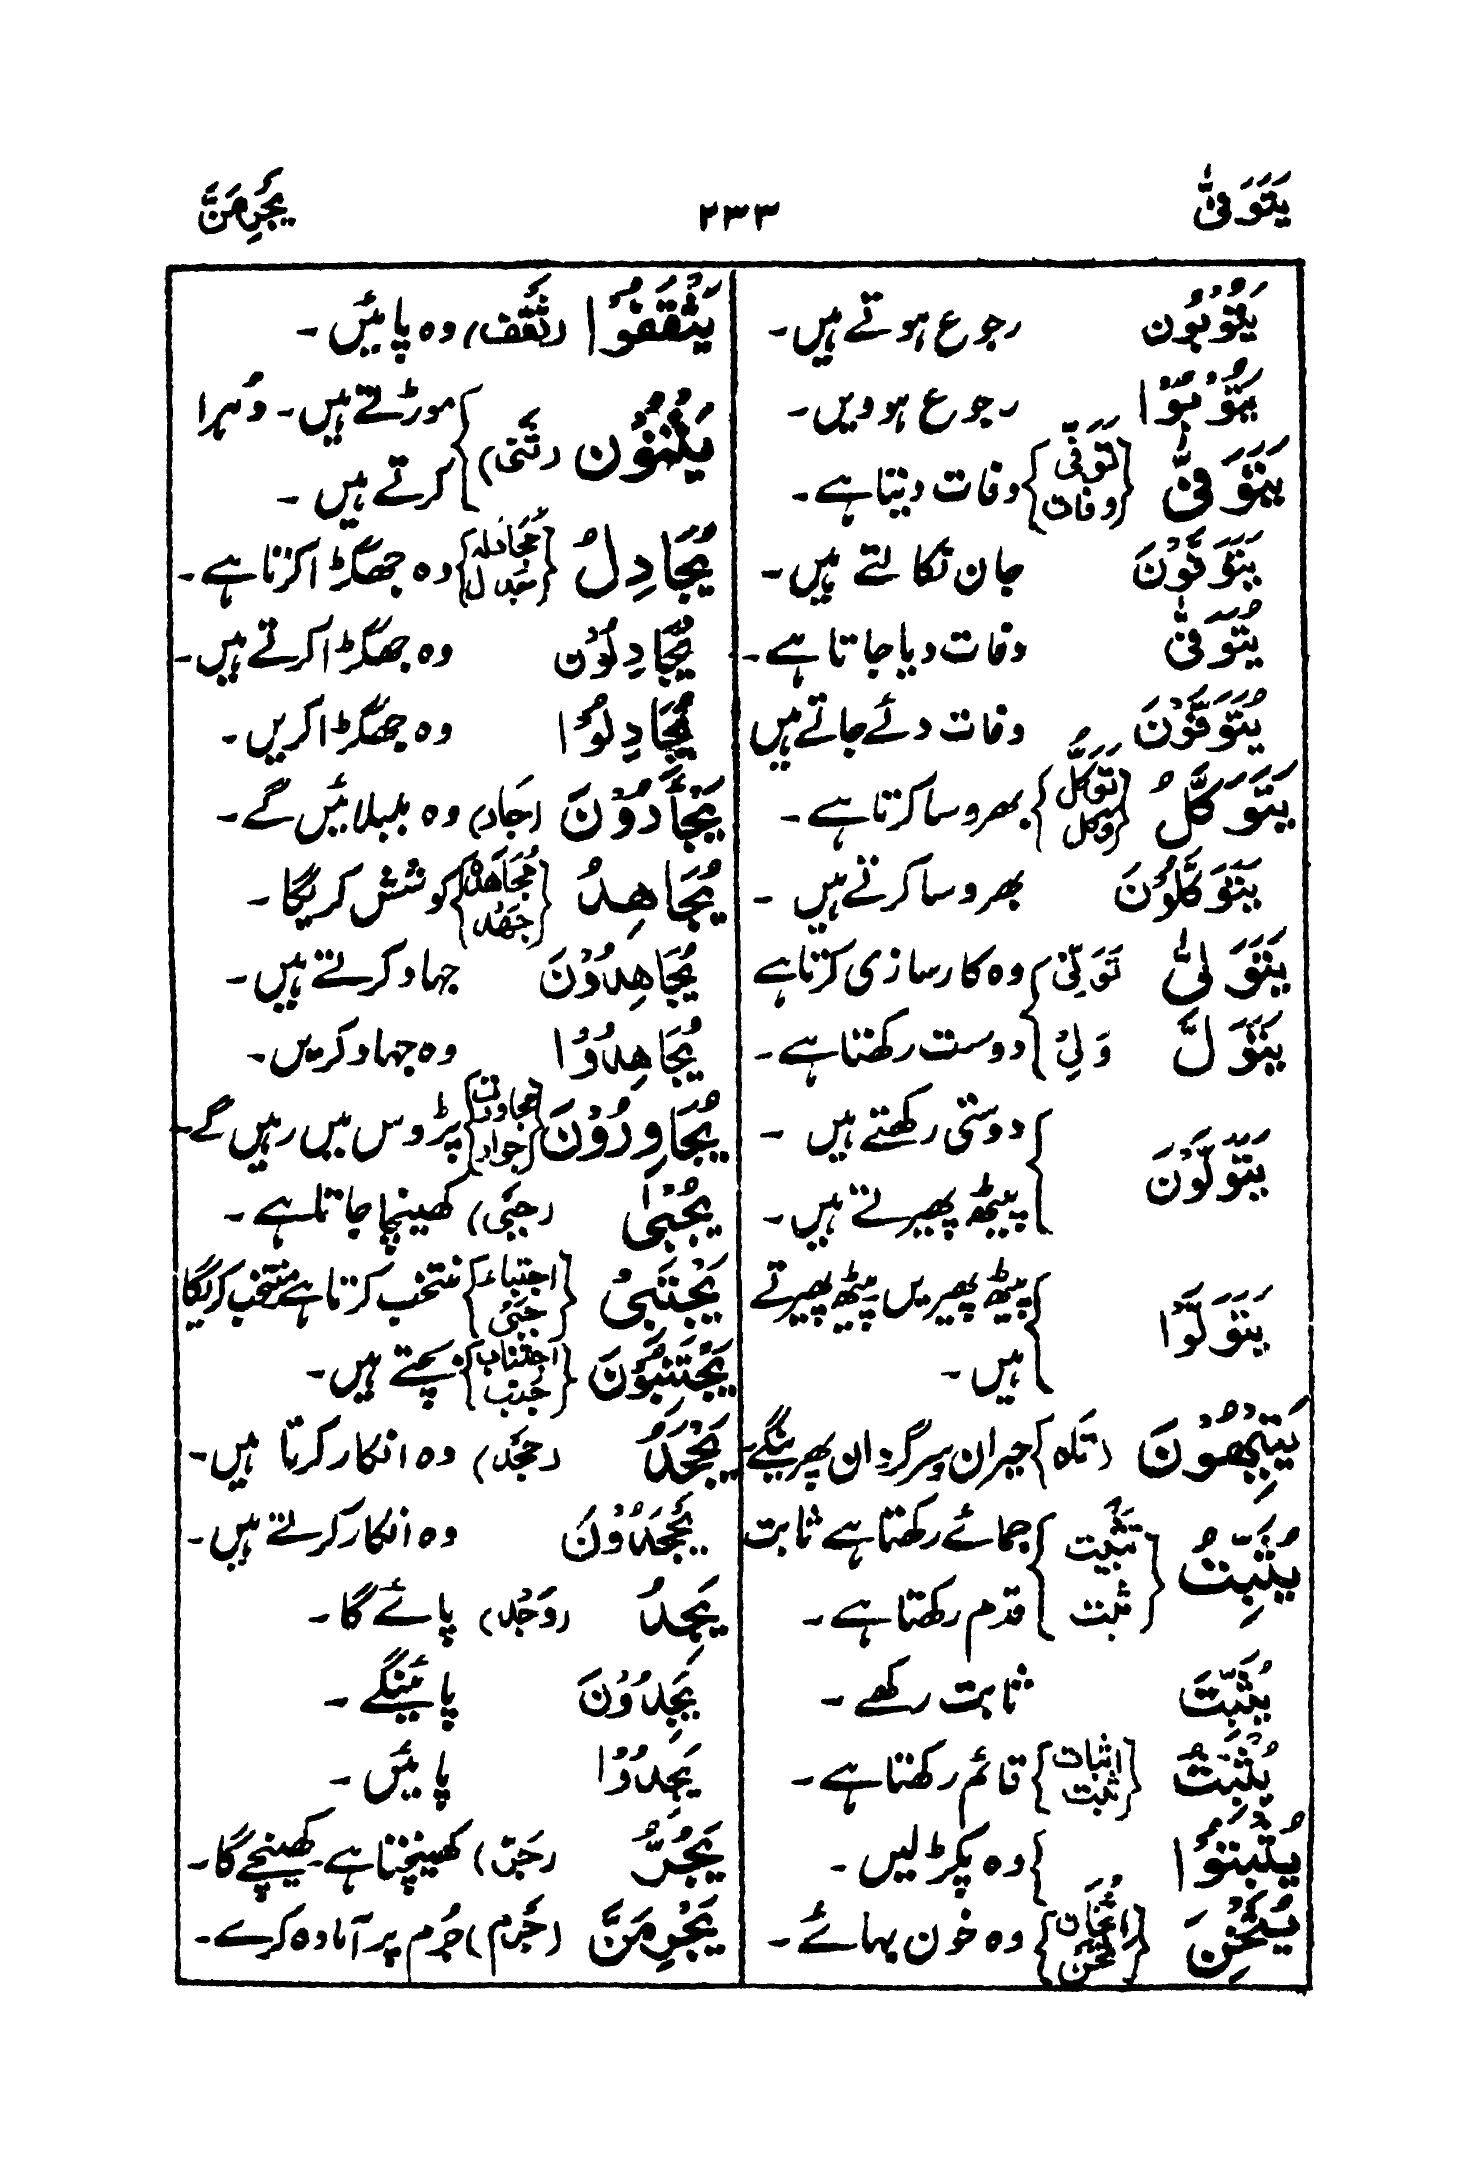 يَتَوَفّٰى ۲۳۳ يَجْرِمَنَّ
يَتُوْبُوْن رجوع ہوتے ہیں۔
يَتُوْبُوْا رجوع ہوویں۔
يَتَوَفّٰى {تَوَفّي وفات} وفات دیتا ہے۔
يَتَوَفَّوْنَ جان نکالتے ہیں۔
يُتَوَفّٰى وفات دیا جاتا ہے۔
يُتَوَفَّوْنَ وفات دئے جاتے ہیں
يَتَوَكَّلُ {تَوَكُّل وكل} بھروسا کرتا ہے۔
يَتَوَكَّلُوْنَ بھروسا کرتے ہیں۔
يَتَوَلّٰى تَوَلِّيْ وہ کارسازی کرتا ہے
يَتَوَلَّ وَلِيْ دوست رکھتا ہے۔
يَتَوَلَّوْنَ دوستی رکھتے ہیں۔
پیٹھ پھیرتے ہیں۔
يَتَوَلَّوْا پیٹھ پھیریں پیٹھ پھیرتے
ہیں۔
يَتِيْهُوْنَ (تلہ) حیران و سرگردان پھرینگے۔
يُثَبِّتُ {تَثْبِيت ثبت} جمائے رکھتا ہے ثابت
قدم رکھتا ہے۔
يُثَبِّتَ ثابت رکھے۔
يُثْبِتُ {اثبات ثبت} قائم رکھتا ہے۔
يُثْبِتُوْا وہ پکڑ لیں۔
يُثْخِنَ {اثخان ثخن} وہ خون بہائے۔
يَثْقَفُوْا (ثَقَف) وہ پائیں۔
يَثْنُوْن (ثَنی) موڑتے ہیں۔ دُہرا
کرتے ہیں۔
يُجَادِلُ {مُجَادله جدل} وہ جھگڑا کرتا ہے۔
يُجَادِلُوْن وہ جھگڑا کرتے ہیں۔
يُجَادِلُوْا وہ جھگڑا کریں۔
يَجْأَرُوْنَ (جَار) وہ بلبلائیں گے۔
يُجَاهِدُ {مُجَاهَدہ جَهْد} کوشش کریگا۔
يُجَاهِدُوْنَ جہاد کرتے ہیں۔
يُجَاهِدُوْا وہ جہاد کریں۔
يُجَاوِرُوْنَ {مجاورت جوار} پڑوس میں رہیں گے۔
يُجْبٰى (جَبْی) کھینچا جاتا ہے۔
يَجْتَبِيْ {اجتباء جَبْی} منتخب کرتا ہے منتخب کریگا
يَجْتَنِبُوْنَ {اجتناب جَنب} بچتے ہیں۔
يَجْحَدُ (جَحَد) وہ انکار کرتا ہیں۔
يَجْحَدُوْنَ وہ انکار کرتے ہیں۔
يَجِدُ (وَجْد) پائے گا۔
يَجِدُوْنَ پائینگے۔
يَجِدُوْا پائیں۔
يَجُرُّ (جَرّ) کھینچتا ہے۔ کھینچے گا۔
يَجْرِمَنَّ (جَرم) جُرم پر آمادہ کرے۔